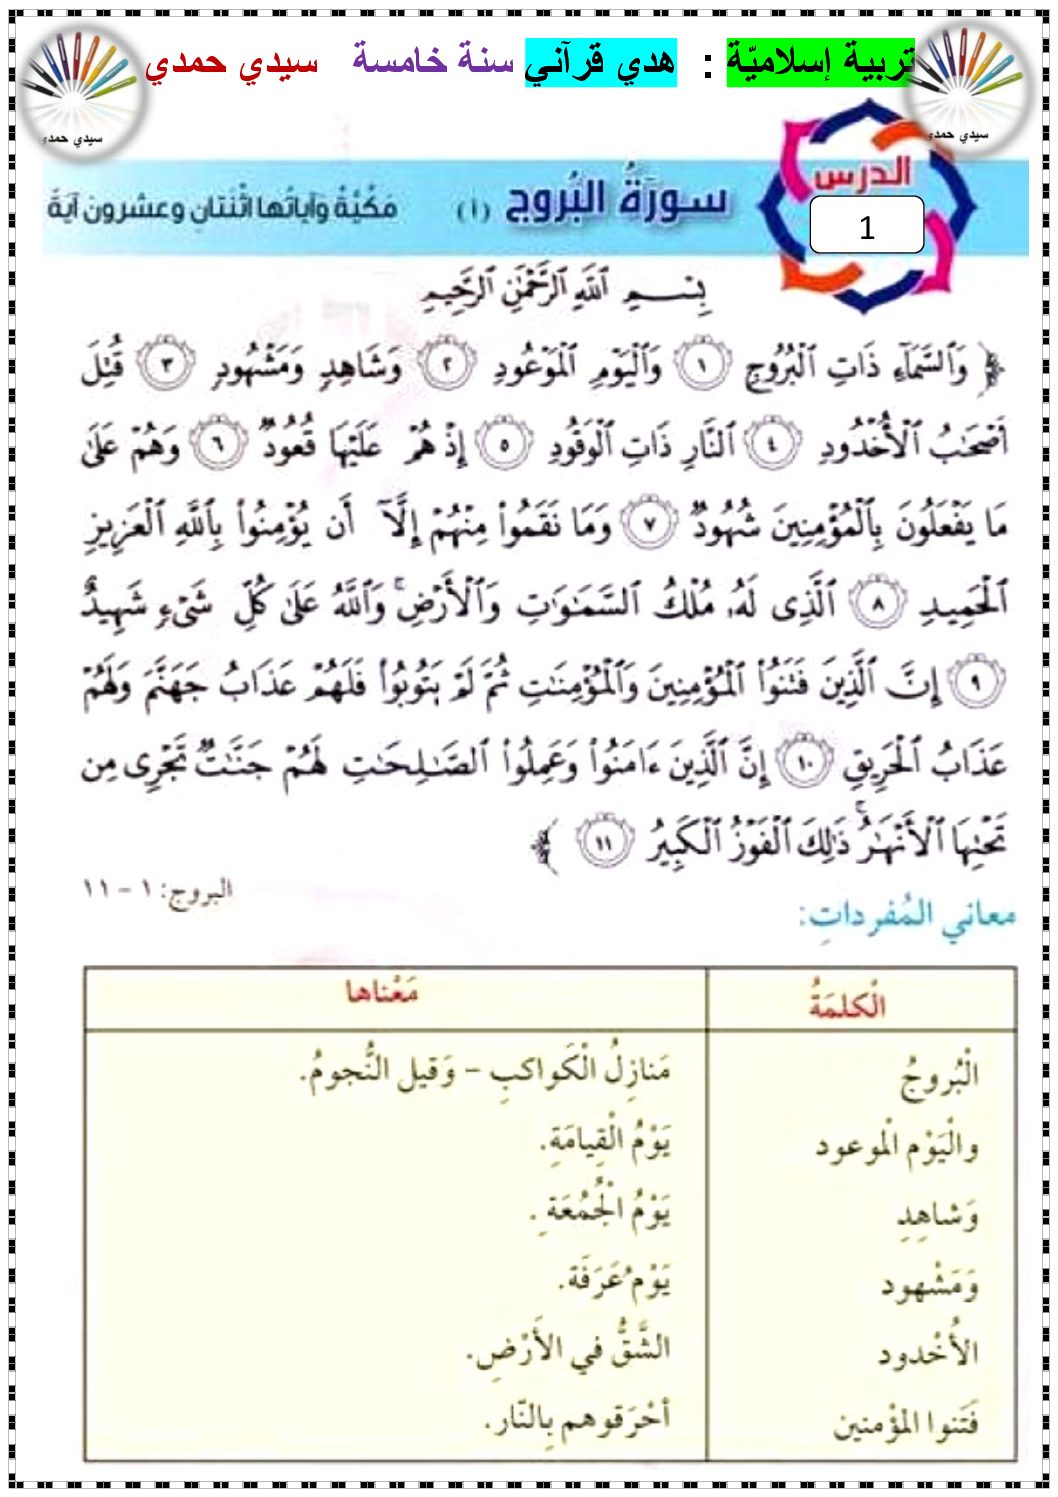 تربية إسلاميّة : هدي قرآني سنة خامسة سيدي حمدي
سيدي حمدي
سيدي حمدي
الدرس
1
سورَةُ البُروج (١) مَكِّيَّةٌ وَآياتُها اثْنَتانِ وَعشرون آيَةً
بِسْمِ ٱللَّهِ ٱلرَّحْمَٰنِ ٱلرَّحِيمِ
﴿ وَٱلسَّمَآءِ ذَاتِ ٱلْبُرُوجِ ١ وَٱلْيَوْمِ ٱلْمَوْعُودِ ٢ وَشَاهِدٍ وَمَشْهُودٍ ٣ قُتِلَ
أَصْحَٰبُ ٱلْأُخْدُودِ ٤ ٱلنَّارِ ذَاتِ ٱلْوَقُودِ ٥ إِذْ هُمْ عَلَيْهَا قُعُودٌ ٦ وَهُمْ عَلَىٰ
مَا يَفْعَلُونَ بِٱلْمُؤْمِنِينَ شُهُودٌ ٧ وَمَا نَقَمُوا۟ مِنْهُمْ إِلَّآ أَن يُؤْمِنُوا۟ بِٱللَّهِ ٱلْعَزِيزِ
ٱلْحَمِيدِ ٨ ٱلَّذِى لَهُۥ مُلْكُ ٱلسَّمَٰوَٰتِ وَٱلْأَرْضِ ۚ وَٱللَّهُ عَلَىٰ كُلِّ شَىْءٍ شَهِيدٌ
٩ إِنَّ ٱلَّذِينَ فَتَنُوا۟ ٱلْمُؤْمِنِينَ وَٱلْمُؤْمِنَٰتِ ثُمَّ لَمْ يَتُوبُوا۟ فَلَهُمْ عَذَابُ جَهَنَّمَ وَلَهُمْ
عَذَابُ ٱلْحَرِيقِ ١٠ إِنَّ ٱلَّذِينَ ءَامَنُوا۟ وَعَمِلُوا۟ ٱلصَّٰلِحَٰتِ لَهُمْ جَنَّٰتٌ تَجْرِى مِن
تَحْتِهَا ٱلْأَنْهَٰرُ ۚ ذَٰلِكَ ٱلْفَوْزُ ٱلْكَبِيرُ ١١ ﴾
البروج: ١ - ١١
معاني المُفرداتِ:
الْكلمَةُ مَعْناها
الْبُروجُ مَنازِلُ الْكَواكبِ - وَقيل النُّجومُ.
والْيَوْم الْموعود يَوْمُ الْقِيامَةِ.
وَشاهِدِ يَوْمُ الْجُمُعَةِ.
وَمَشْهود يَوْمُ عَرَفَةَ.
الأُخْدود الشَّقُّ في الأَرْضِ.
فَتَنوا المؤْمنين أحْرَقوهم بِالنّار.